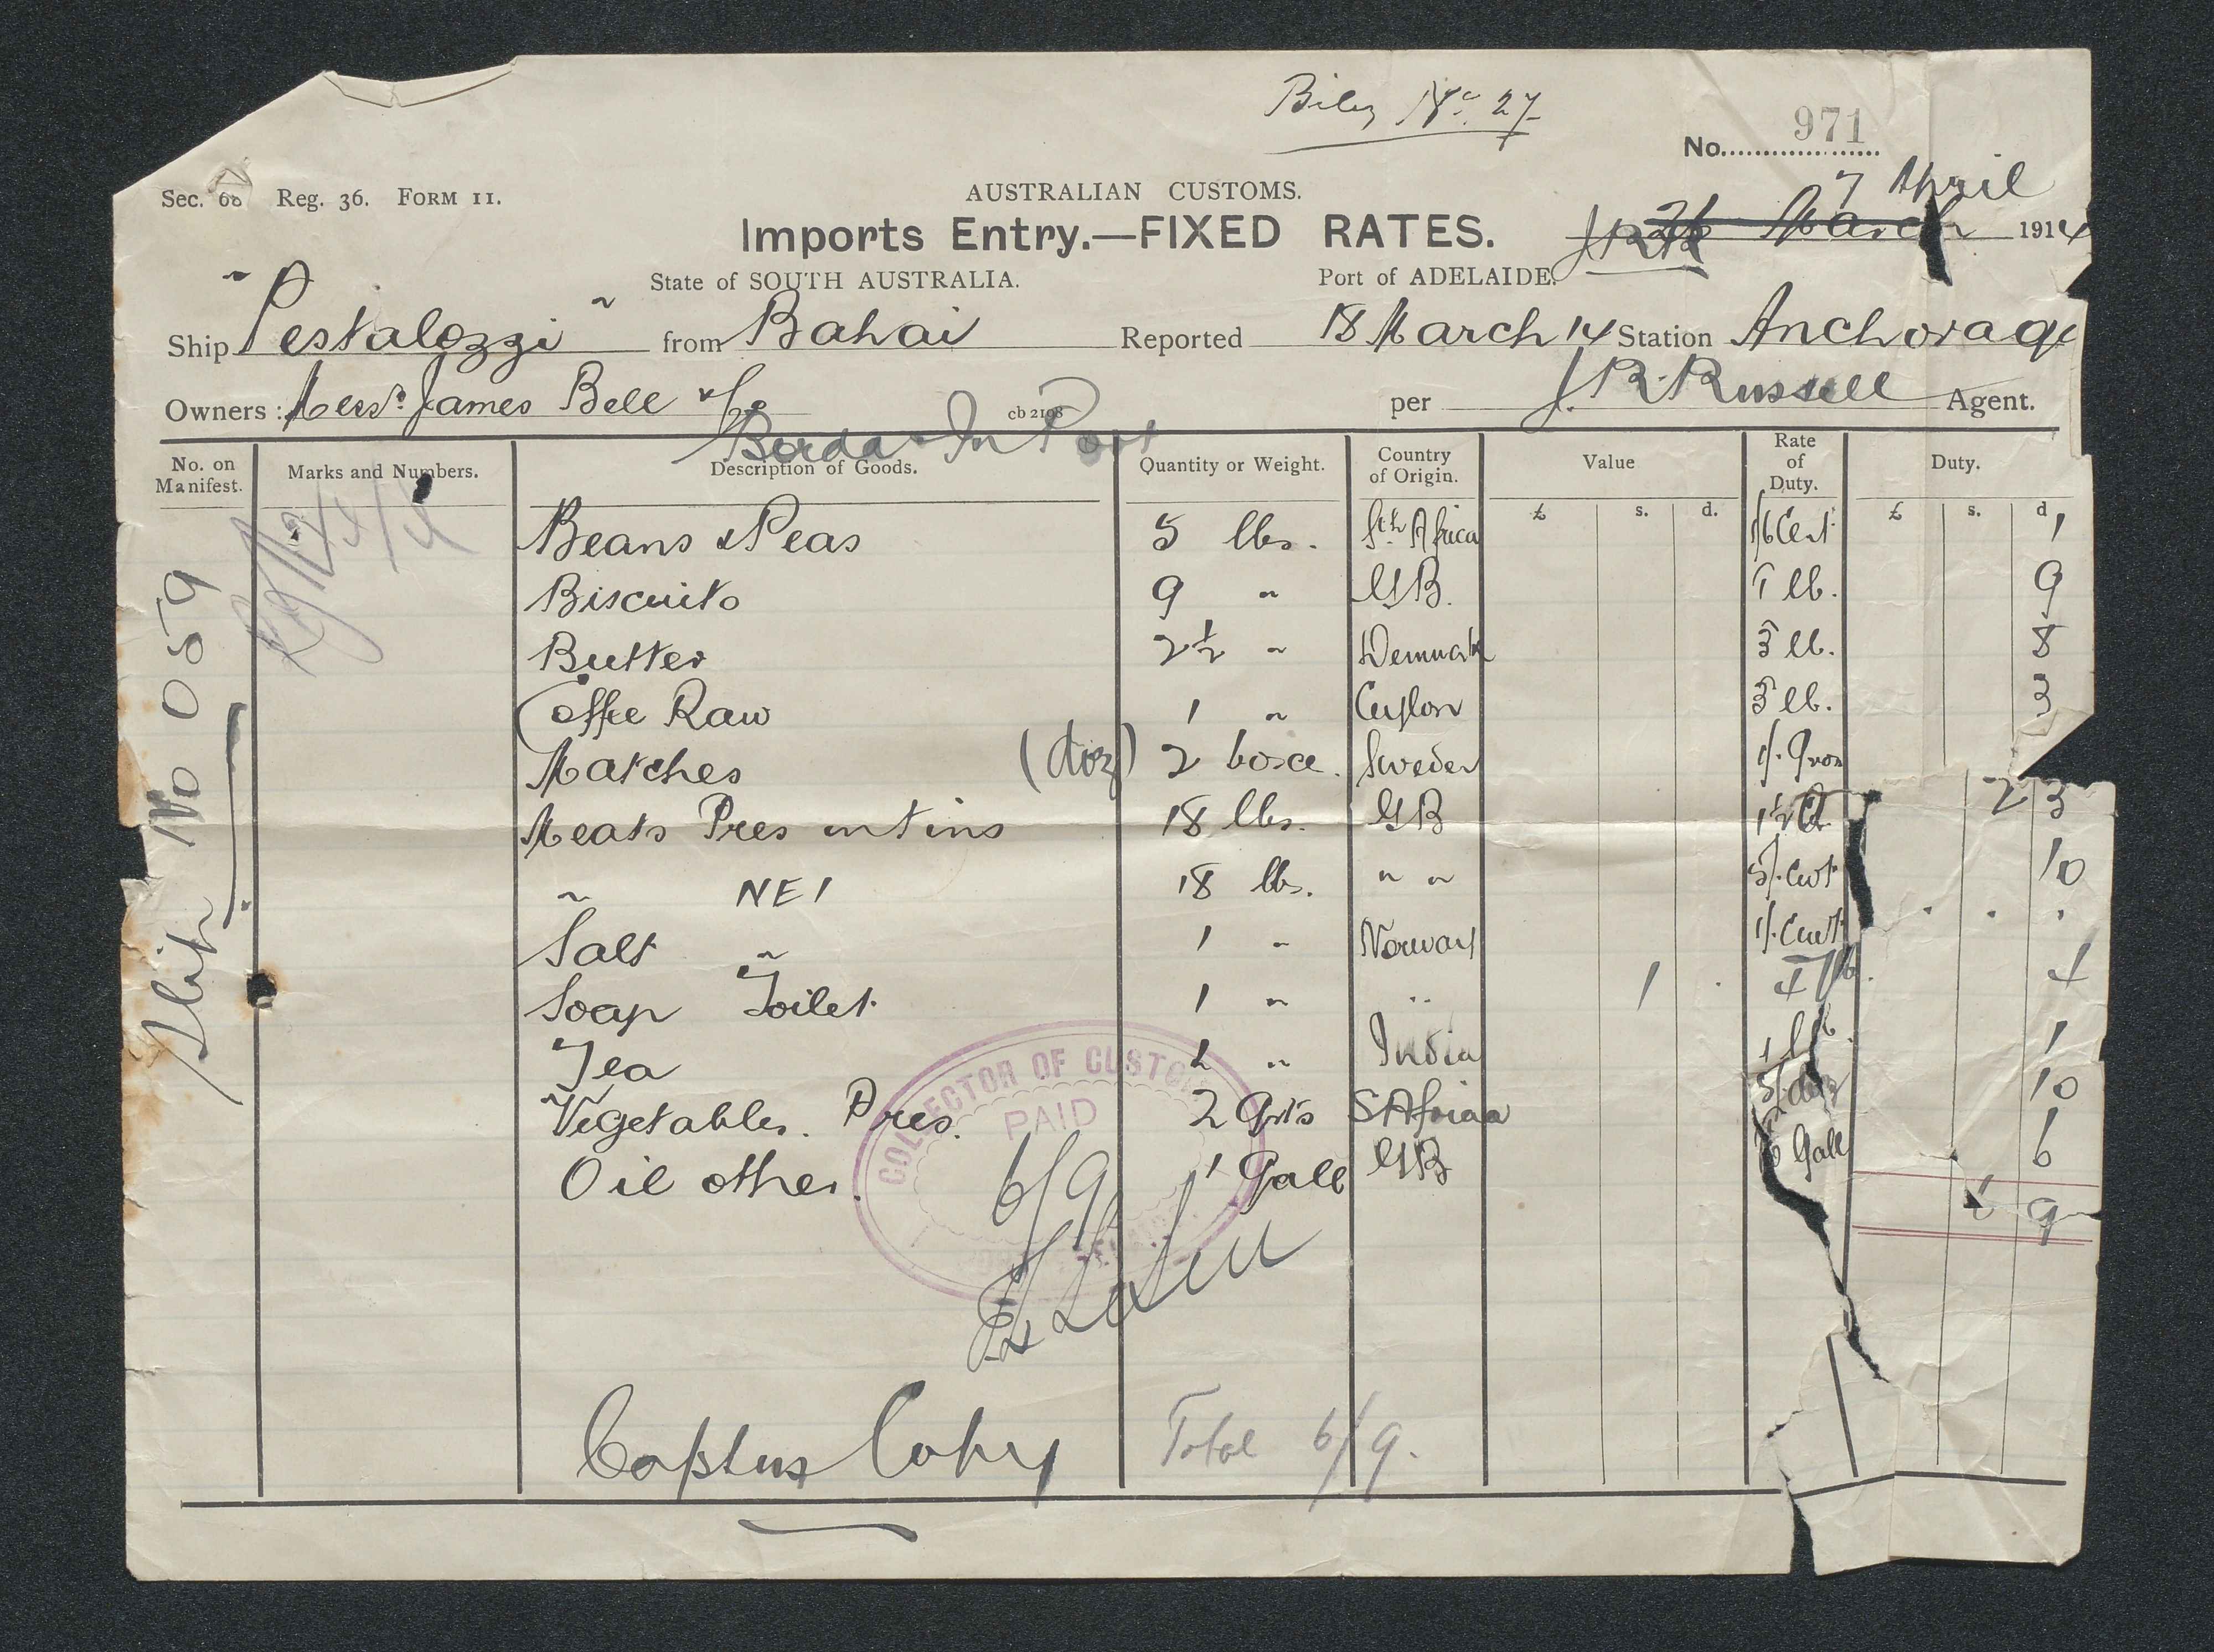 Biley No. 27
No. 971
Sec. 68 Reg. 36. FORM 11.
AUSTRALIAN CUSTOMS.
7 April
Imports Entry.—FIXED RATES.
JRR 26 March 1914
State of SOUTH AUSTRALIA. Port of ADELAIDE.
Ship "Pestalozzi" from Bahai Reported 18 March 14 Station Anchorage
Owners: Messrs. James Bell & Co cb 2198 per J. R. Russell Agent.
Borda In Port
No. on Manifest. Marks and Numbers. Description of Goods. Quantity or Weight. Country of Origin. Value Rate of Duty. Duty.
£ s. d. £ s. d
Beans & Peas 5 lbs. Sth Africa 1/6 Cent 1
Biscuits 9 " GB. 1 lb. 9
Butter 2½ " Denmark 3 lb. 8
Coffee Raw 1 " Ceylon 3 lb. 3
Matches (doz) 2 boxe. Sweden 1/. Gros
Meats Pres in tins 18 lbs. GB 1½ 2 3
" NEI 18 lbs. " " 5/. Cwt 10
Salt " 1 " Norway 1/. Cwt . . .
Soap Toilet 1 " " 1 . 4 lb. 4
Tea 1 " India 1 lb. 1
Vegetables. Pres. 2 Qrts S Africa 5/. doz 10
Oil other. 1 Gall GB 6 Gall 6
6 9
COLLECTOR OF CUSTOMS
PAID
6/9
Captns Copy Total 6/9.
Slip No 059